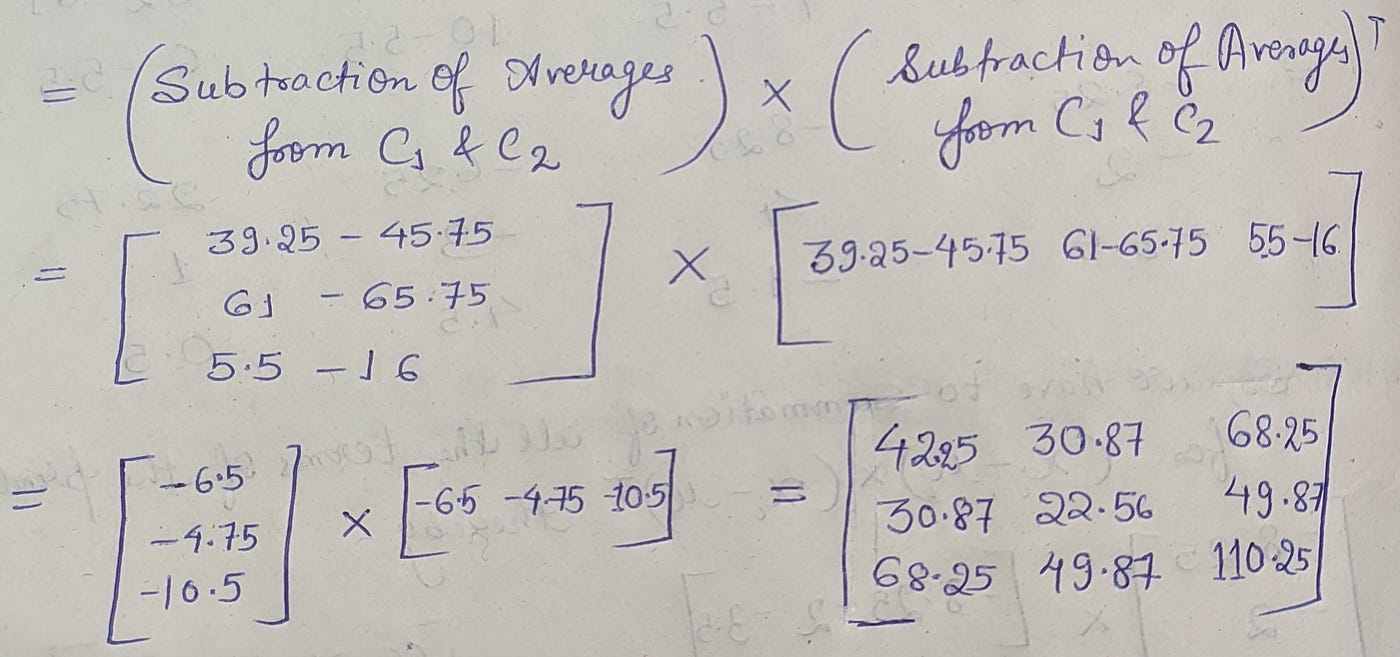 = (Subtraction of Averages from C1 & C2) × (Subtraction of Averages from C1 & C2)ᵀ
= [39.25 - 45.75
61 - 65.75
5.5 - 16] × [39.25-45.75 61-65.75 5.5-16]
= [-6.5
-4.75
-10.5] × [-6.5 -4.75 -10.5] = [42.25 30.87 68.25
30.87 22.56 49.87
68.25 49.87 110.25]